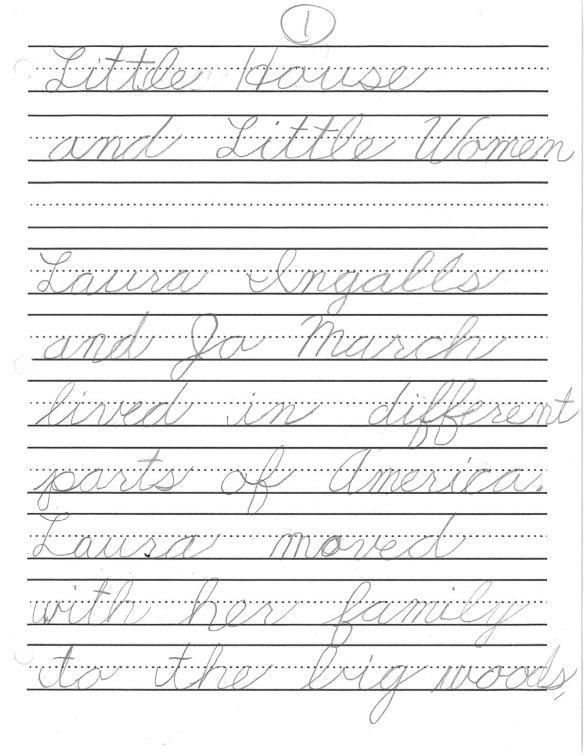 1
Little House
and Little Women
Laura Ingalls
and Jo March
lived in different
parts of America.
Laura moved
with her family
to the big woods,